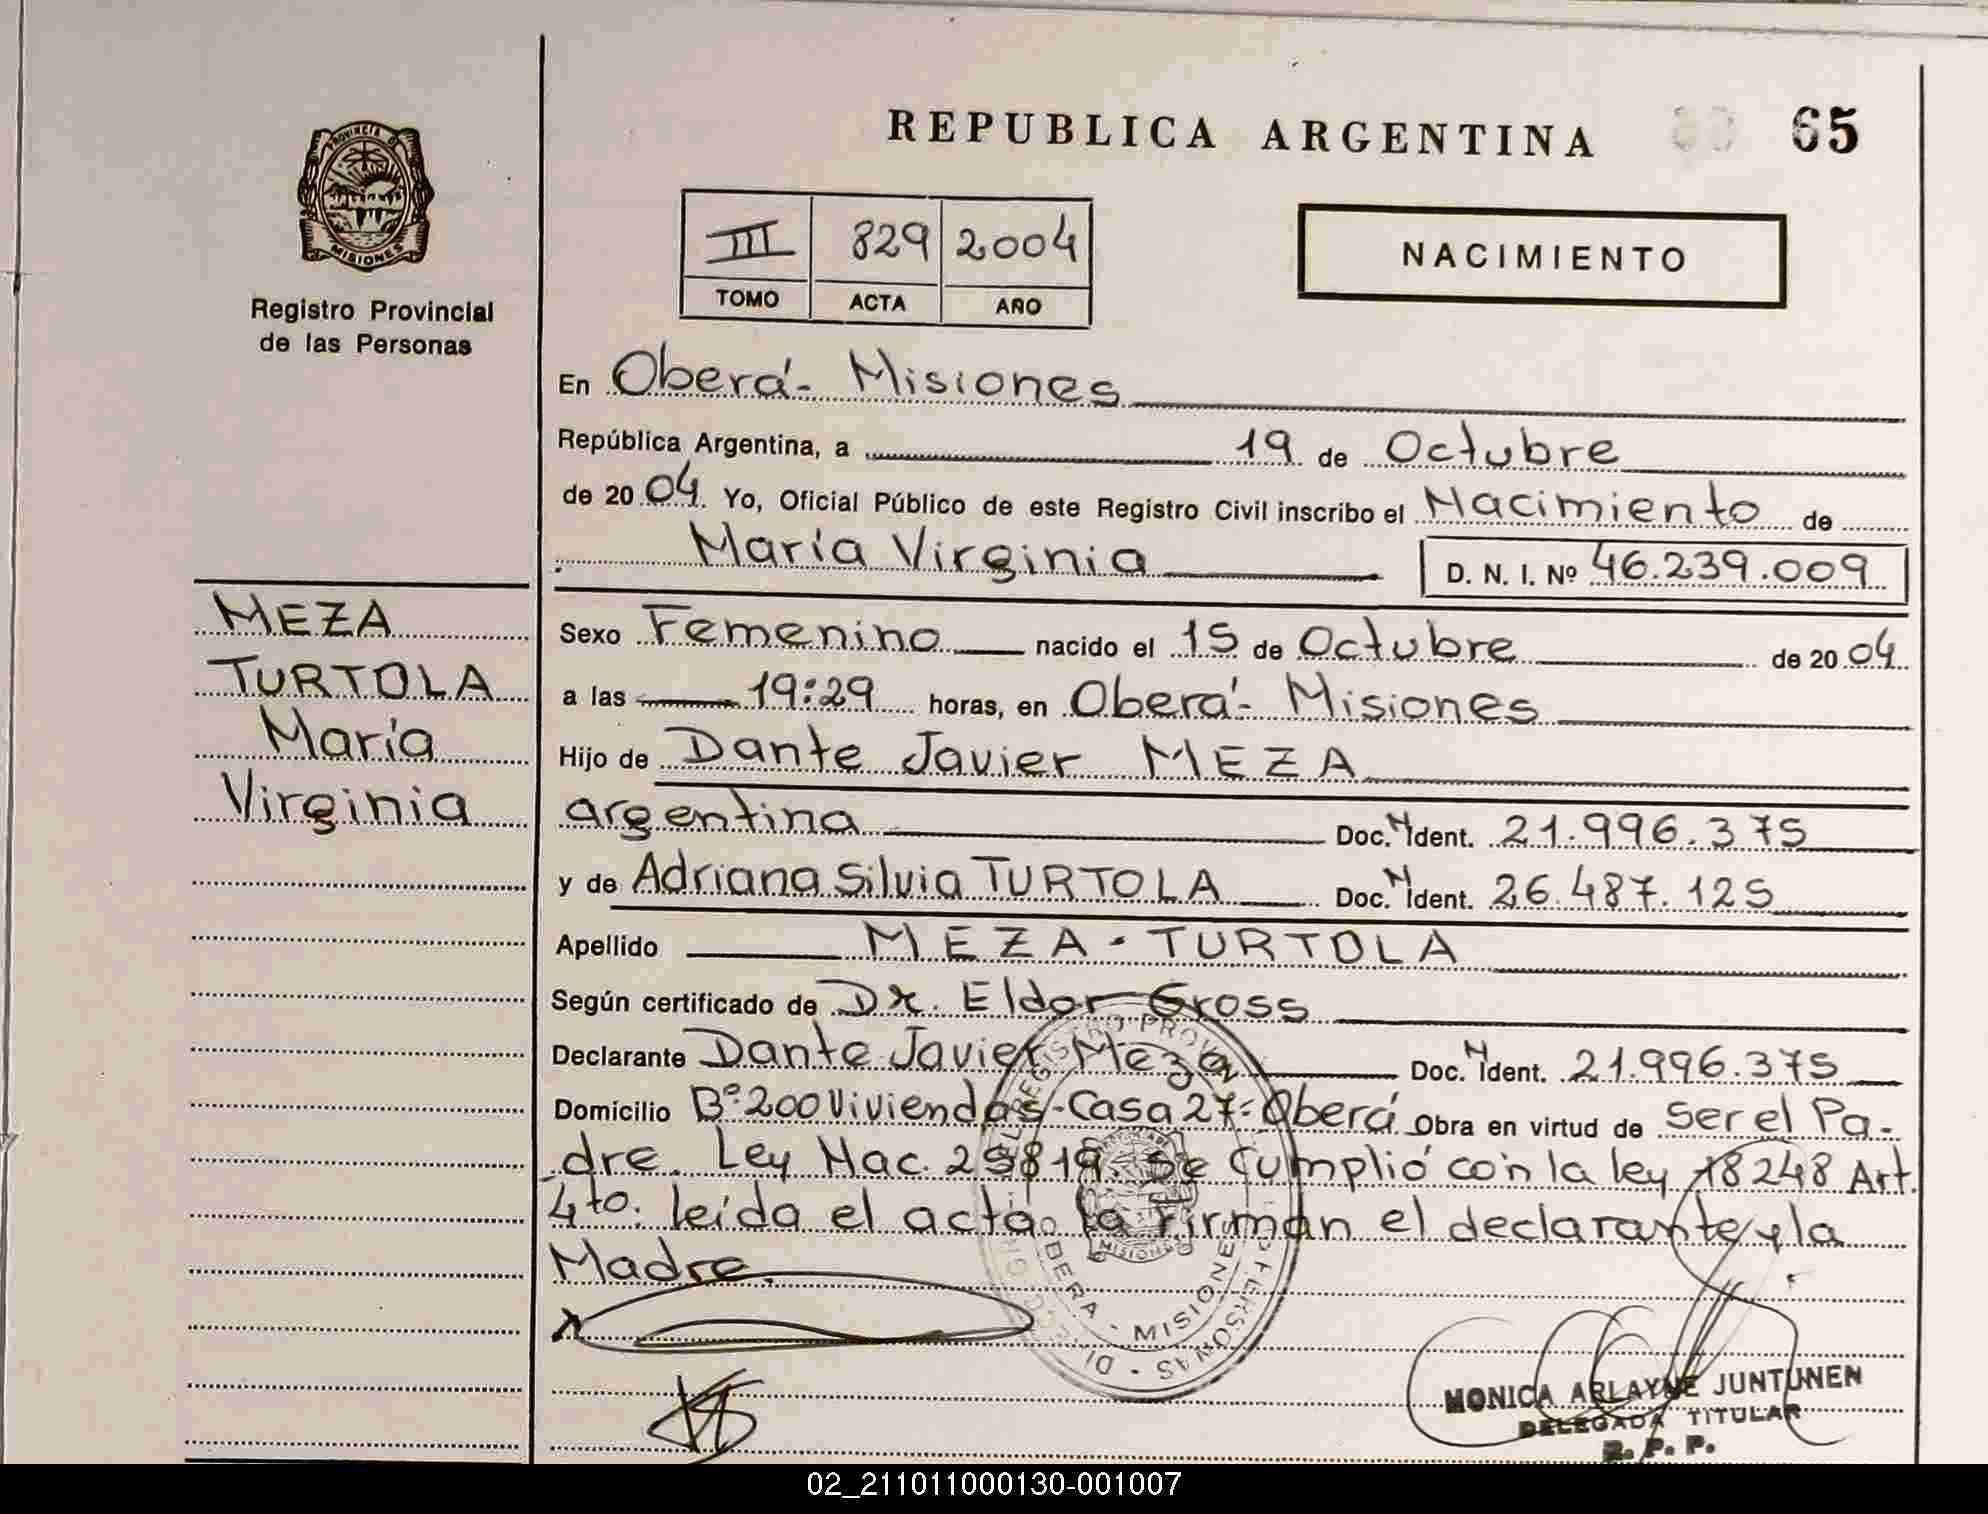 REPUBLICA ARGENTINA 65
PROVINCIA D
MISIONES
Registro Provincial
de las Personas
III 829 2004
TOMO ACTA AÑO
NACIMIENTO
En Oberá - Misiones
República Argentina, a 19 de Octubre
de 2004. Yo, Oficial Público de este Registro Civil inscribo el Nacimiento de
María Virginia D. N. I. Nº 46.239.009
MEZA
TURTOLA
María
Virginia
Sexo Femenino nacido el 15 de Octubre de 2004
a las 19:29 horas, en Oberá - Misiones
Hijo de Dante Javier MEZA
argentina Doc. N Ident. 21.996.375
y de Adriana Silvia TURTOLA Doc. N Ident. 26.487.125
Apellido MEZA - TURTOLA
Según certificado de Dr. Eldor Gross
Declarante Dante Javier Meza Doc. N Ident. 21.996.375
Domicilio Bº 200 Viviendas - Casa 27 - Oberá Obra en virtud de ser el Pa-
dre. Ley Nac. 25819. Se cumplió con la ley 18248 Art.
4to. leída el acta la firman el declarante y la
Madre.
REGISTRO PROV PERSONAS
OBERA - MISIONE
MISIONES
MONICA ARLAYNE JUNTUNEN
DELEGADA TITULAR
R. P. P.
02_211011000130-001007